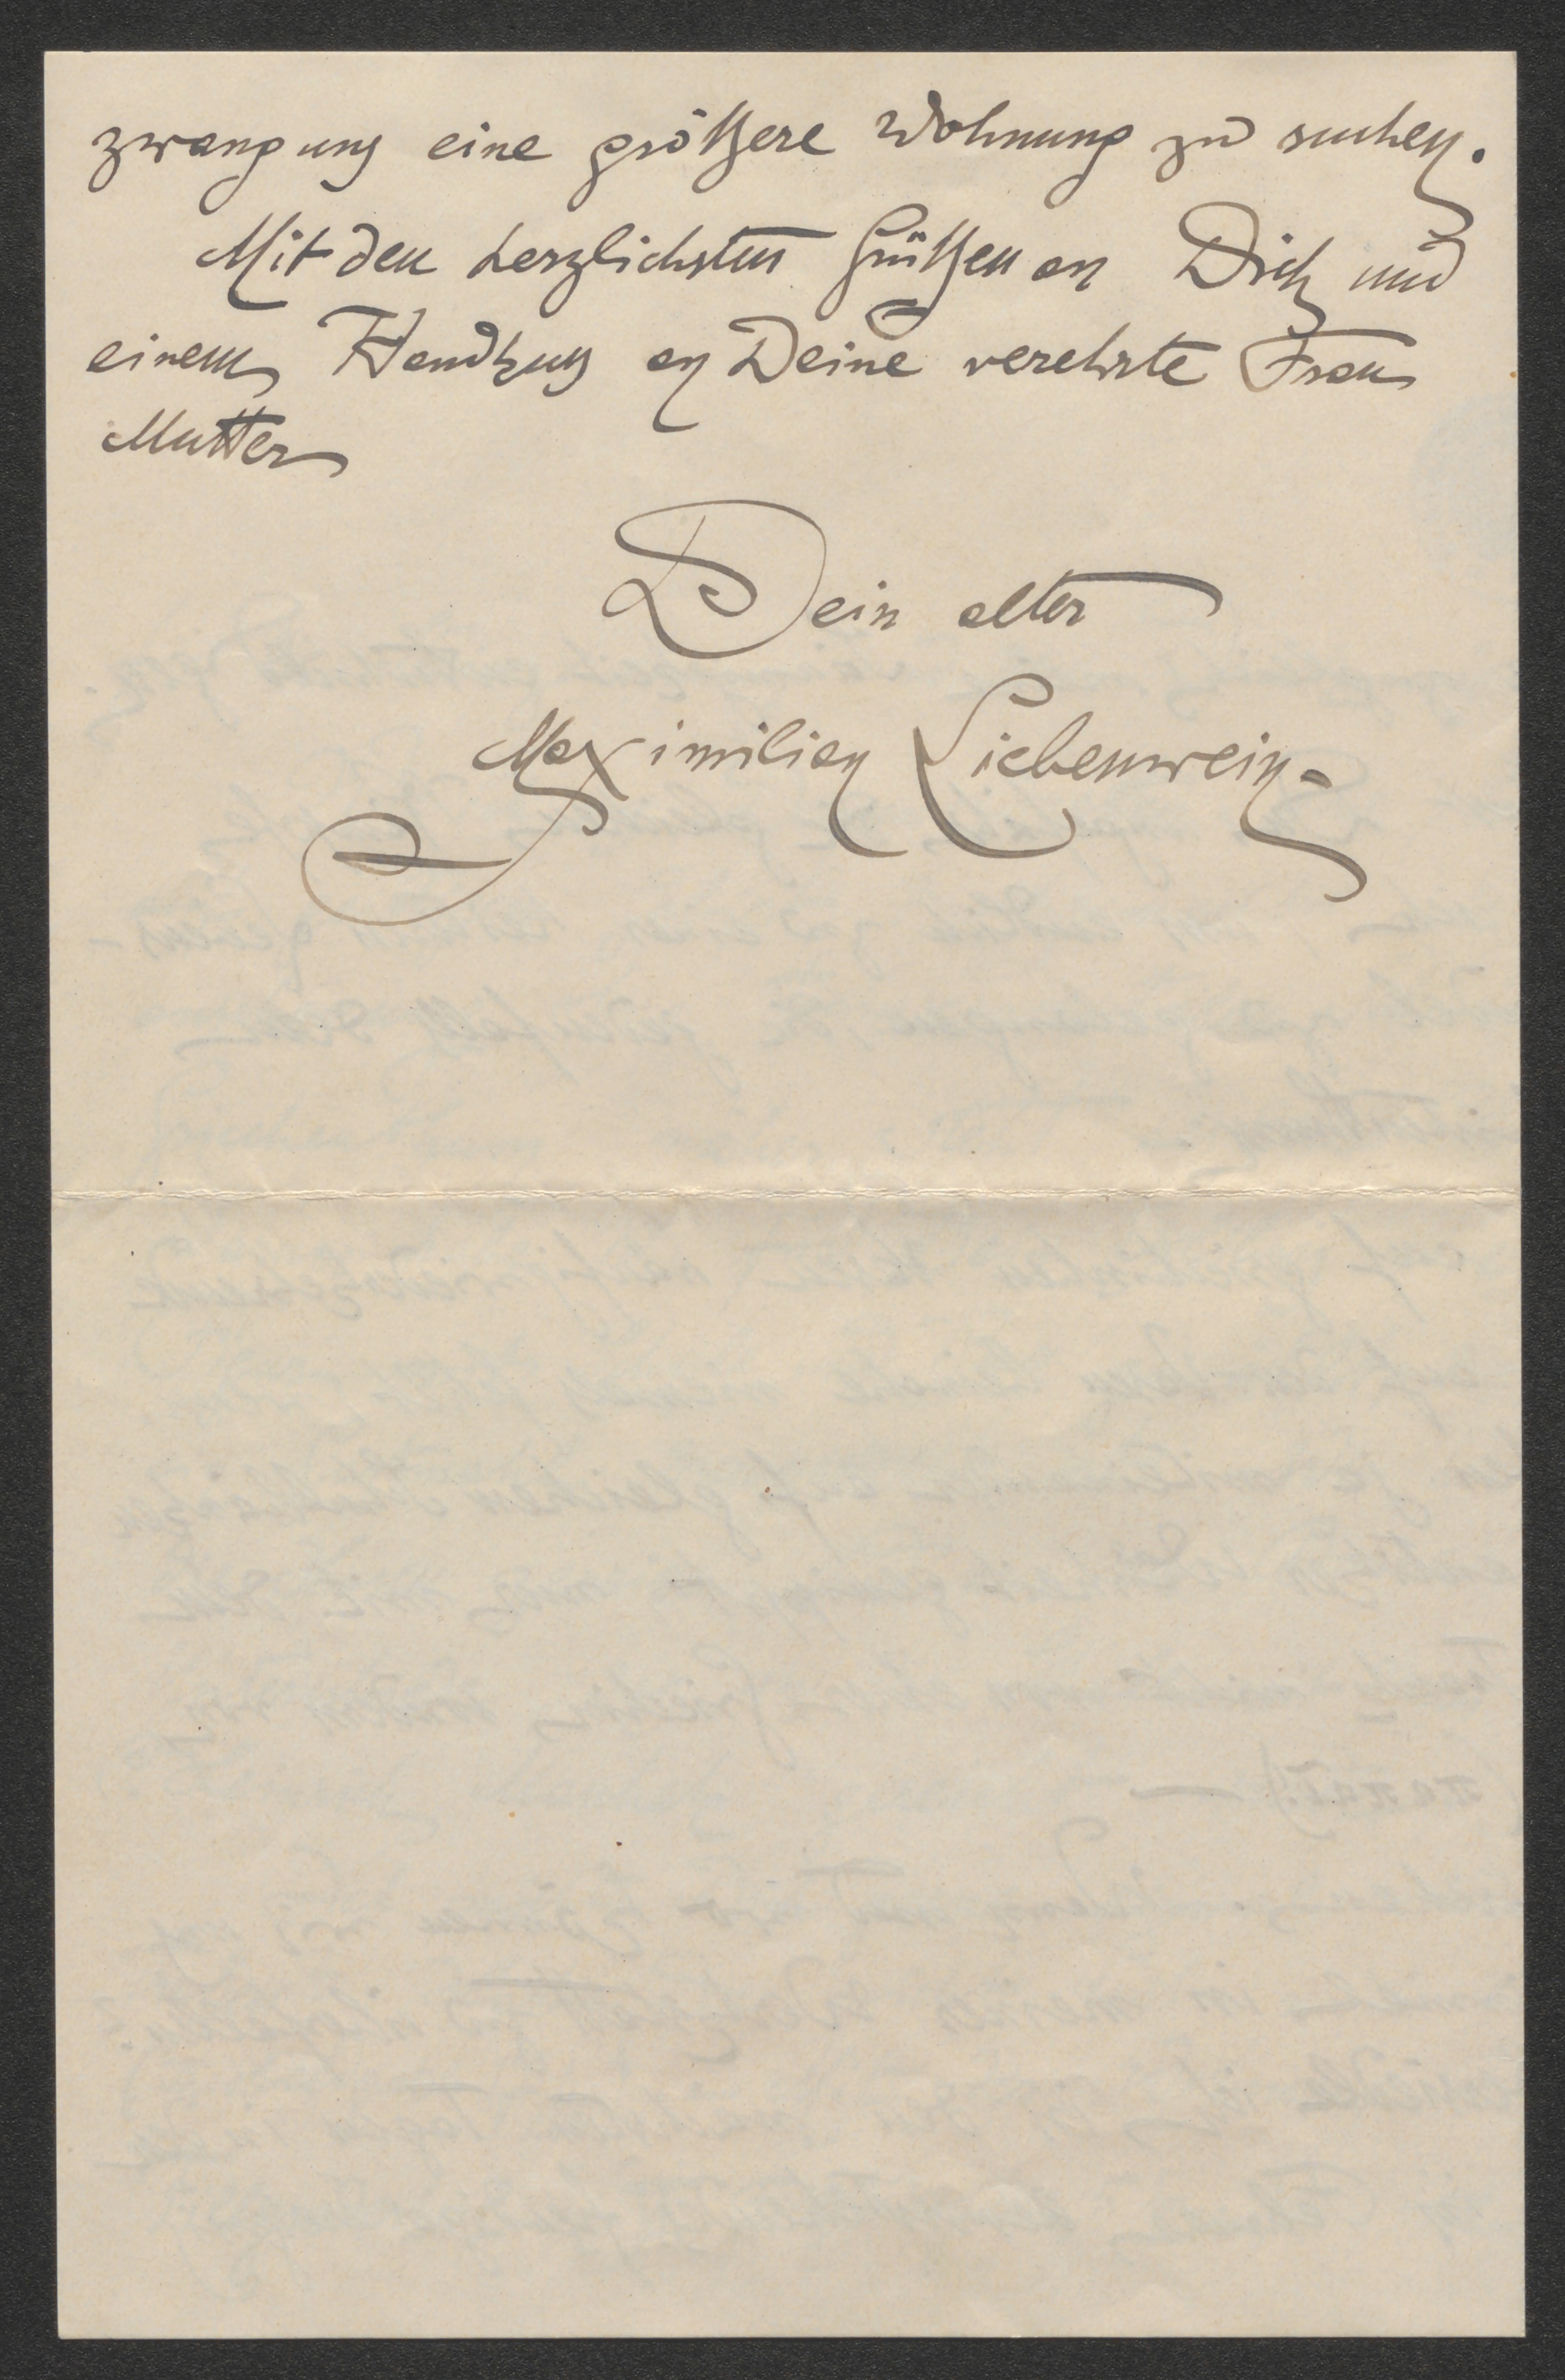 zwang uns eine größere Wohnung zu suchen.
Mit den herzlichsten Grüßen an Dich und
einem Handkuss an Deine verehrte Frau
Mutter
Dein alter
Maximilian Liebenwein.